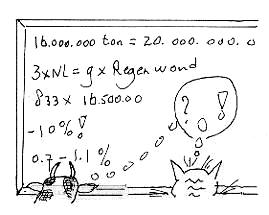 16.000.000 ton = 20.000.000.0
3xNL = 9x Regenwoud
833x 16.500.00
-10%!
0.7 - 1.1%
? !